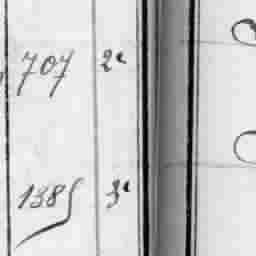 707 2e
1385 3e